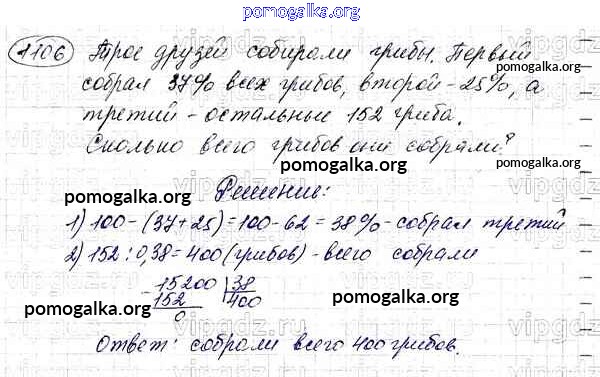 pomogalka.org
1106 Трое друзей собирали грибы. Первый
собрал 37% всех грибов, второй - 25%, а
третий - остальные 152 гриба.
Сколько всего грибов они собрали?
pomogalka.org
Решение:
pomogalka.org pomogalka.org
1) 100-(37+25)=100-62=38% - собрал третий
2) 152:0,38=400 (грибов) - всего собрали
pomogalka.org
15200 38
152 400
0
pomogalka.org pomogalka.org
Ответ: собрали всего 400 грибов.